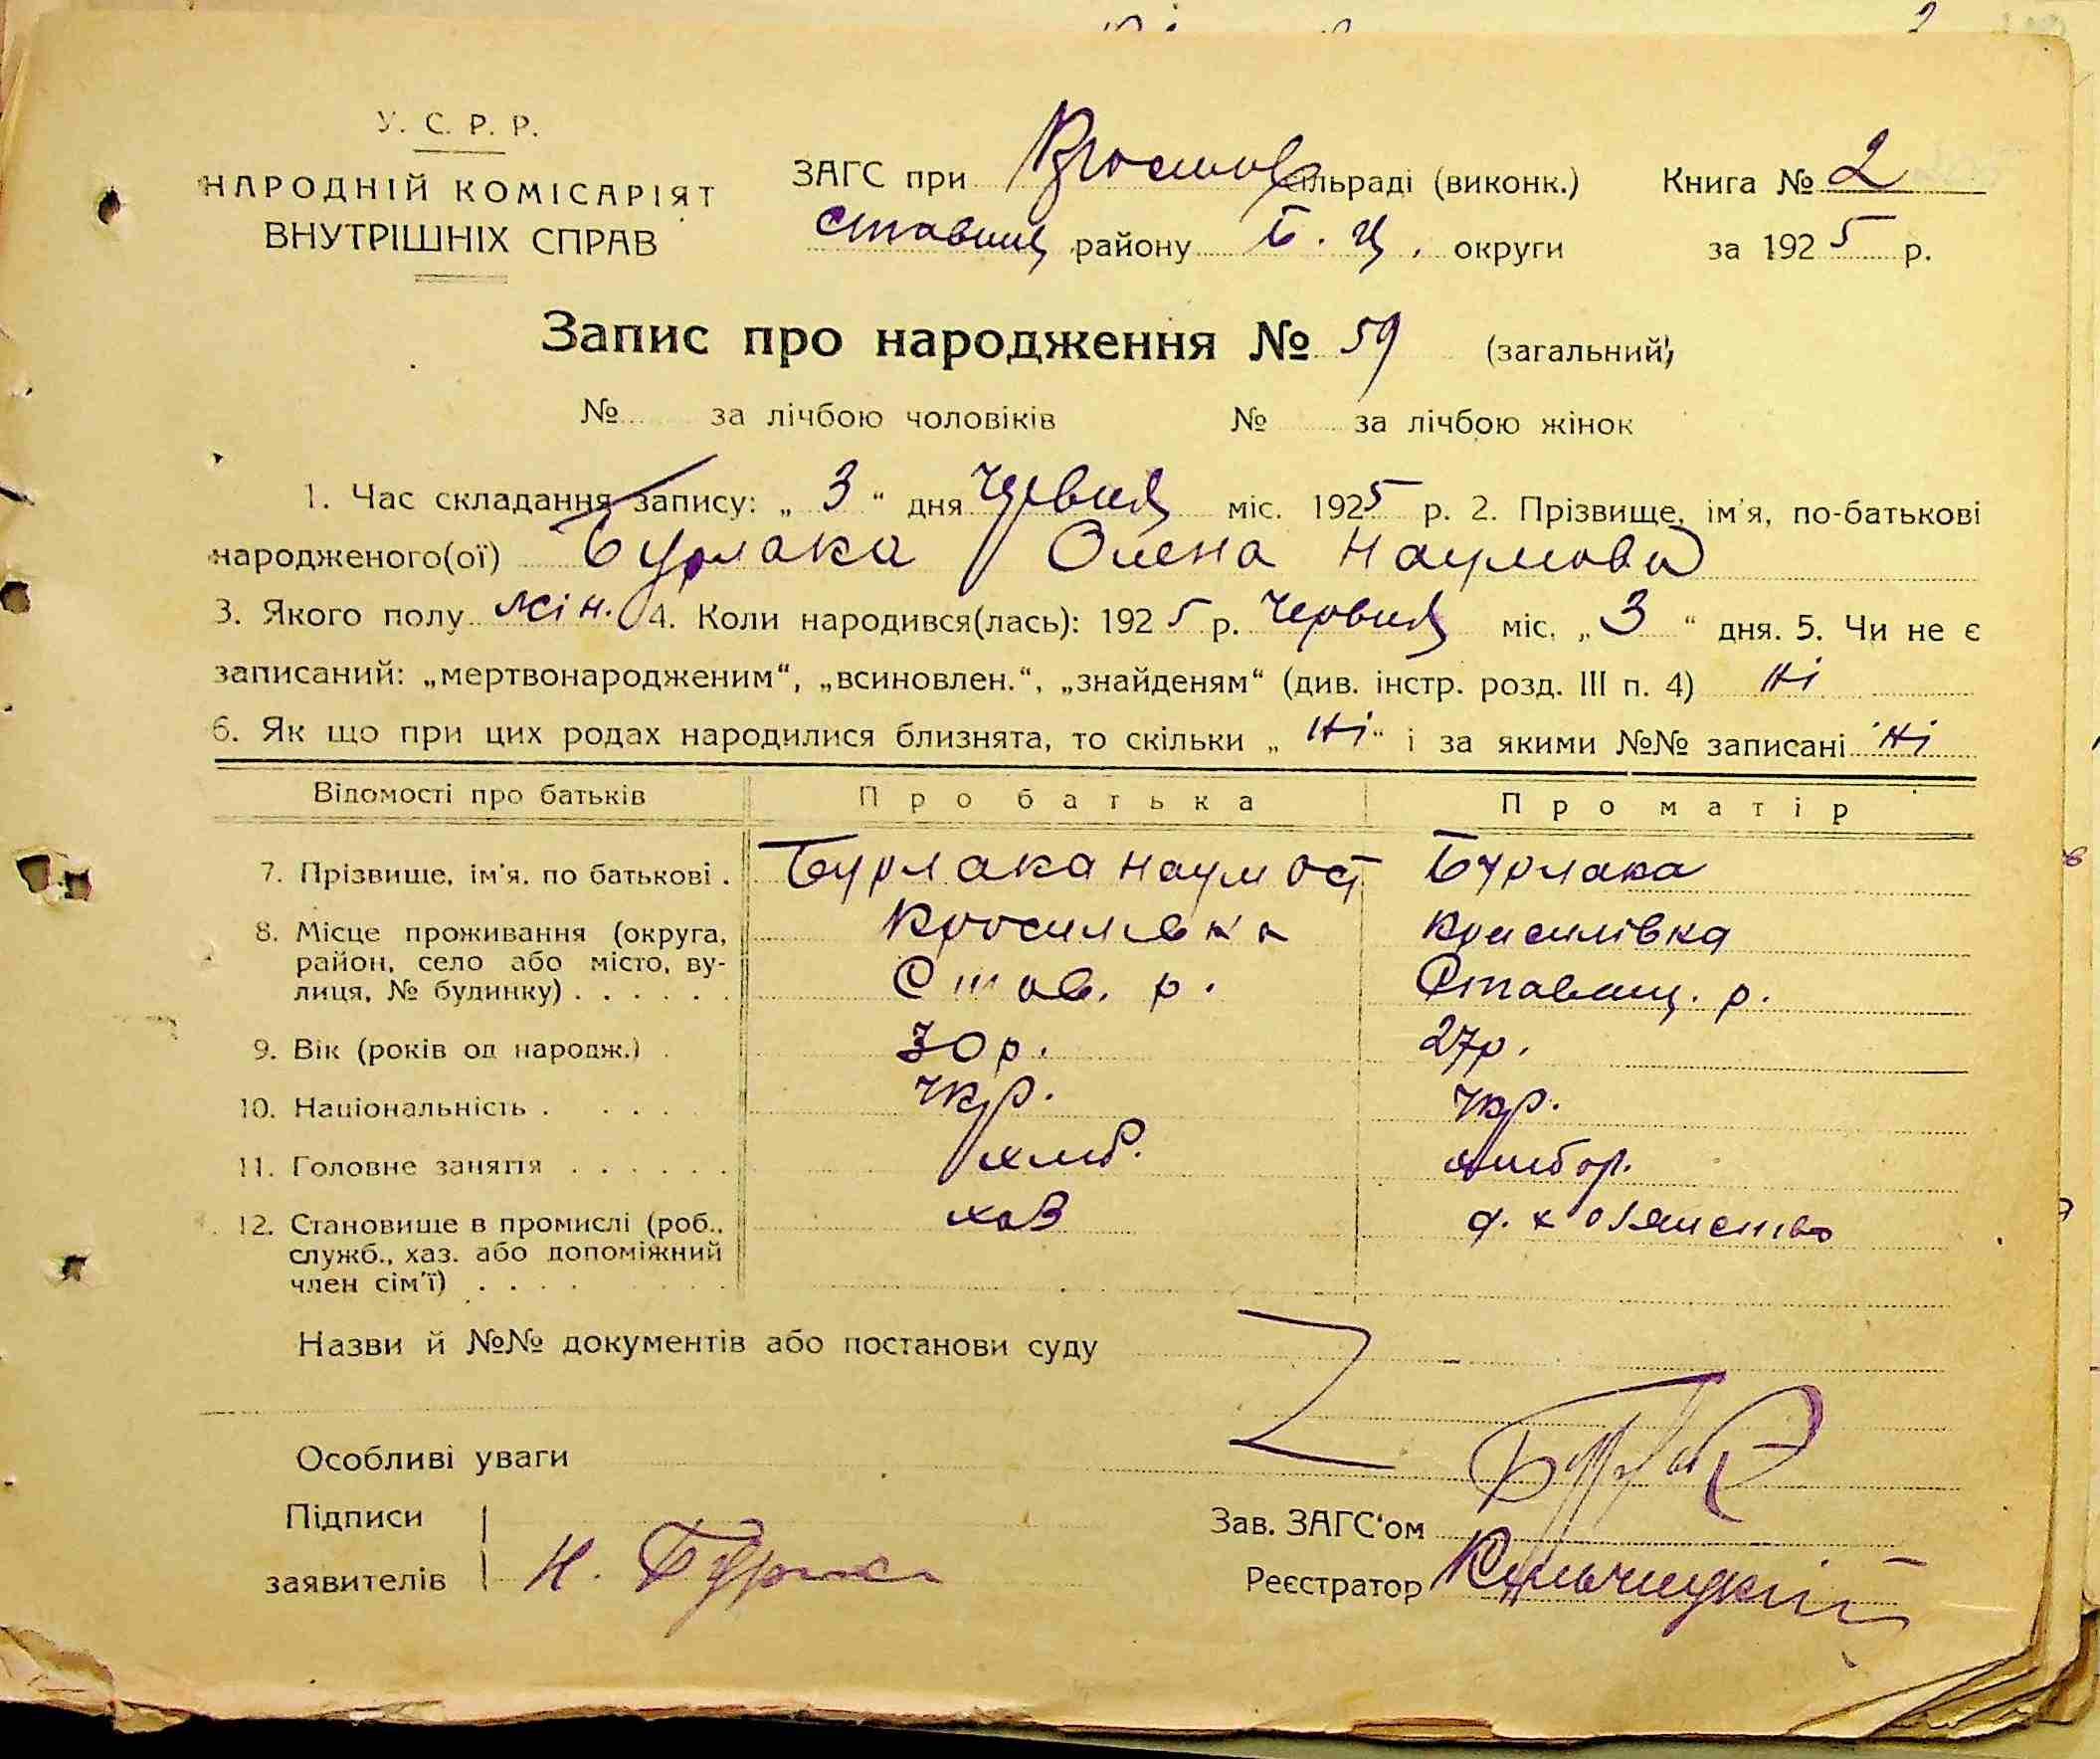 У. С. Р. Р.
НАРОДНІЙ КОМІСАРІЯТ
ВНУТРІШНІХ СПРАВ
ЗАГС при сільраді (виконк.) Книга № 2
Ставищ району Б. Ц. округи за 1925 р.
Запис про народження № 59 (загальний)
№ за лічбою чоловіків № за лічбою жінок
1. Час складання запису: „ 3 “ дня Червня міс. 1925 р. 2. Прізвище, ім'я, по-батькові
народженого(ої) Бурлака Олена Наумова
3. Якого полу жін. 4. Коли народився(лась): 1925 р. Червня міс. „ 3 “ дня. 5. Чи не є
записаний: „мертвонародженим“, „всиновлен.“, „знайденям“ (див. інстр. розд. III п. 4) Ні
6. Як що при цих родах народилися близнята, то скільки „ Ні “ і за якими №№ записані Ні
Відомості про батьків Про батька Про матір
7. Прізвище, ім'я, по батькові . Бурлака Наум Ост Бурлака
8. Місце проживання (округа, Красилівка
район, село або місто, ву- Став. р. Ставищ. р.
лиця, № будинку) . . . . . .
9. Вік (років од народж.) . 30 р. 27 р.
10. Національність . . . . . укр. укр.
11. Головне заняття . . . . . . хліб. хлібор.
12. Становище в промислі (роб., хаз
служб., хаз. або допоміжний
член сім'ї) . . . .
Назви й №№ документів або постанови суду
Особливі уваги
Підписи
заявителів Н. Бурлака
Зав. ЗАГС‘ом
Реєстратор Кульчицкій